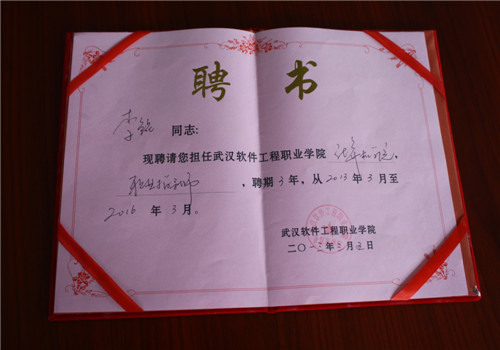 聘书
李锐 同志:
现聘请您担任武汉软件工程职业学院
职业指导师，聘期3年，从2013年3月至
2016年3月。
武汉软件工程职业学院
二〇一三年三月五日